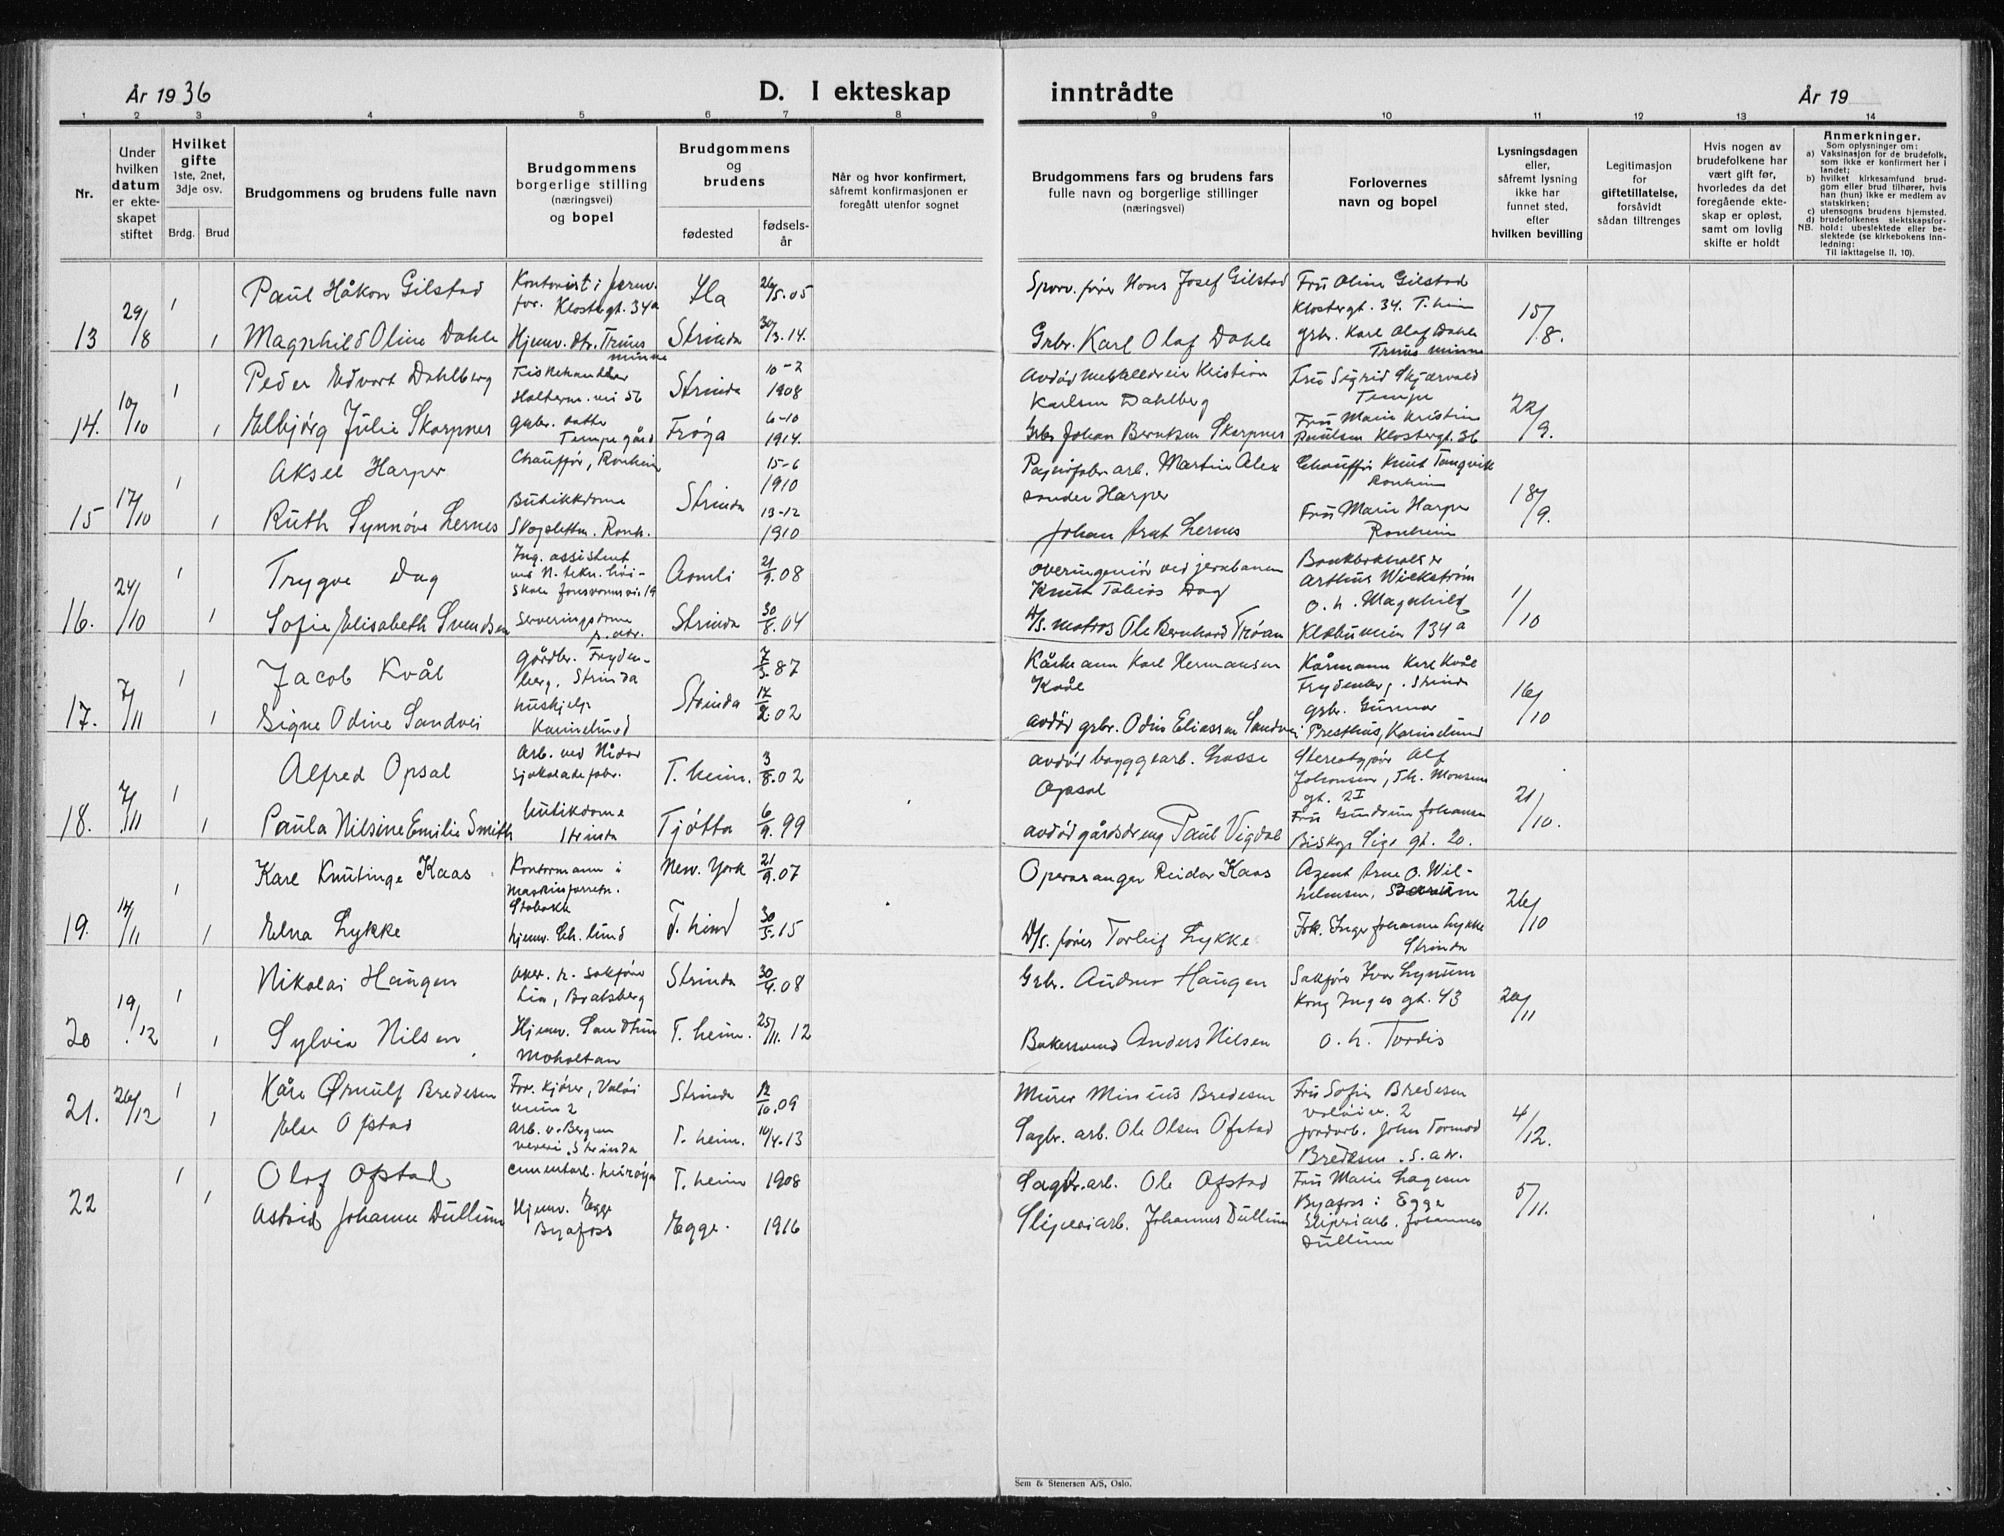 År 1936
D. I ekteskap
inntrådte
År 19
1 2 3 4 5 6 7 8 9 10 11 12 13 14
Nr.
Under hvilken datum er ekte-skapet stiftet
Hvilket gifte 1ste, 2net, 3dje osv.
Brdg. Brud
Brudgommens og brudens fulle navn
Brudgommens borgerlige stilling (næringsvei) og bopel
Brudgommens og brudens
fødested
fødsels-år
Når og hvor konfirmert, såfremt konfirmasjonen er foregått utenfor sognet
Brudgommens fars og brudens fars fulle navn og borgerlige stillinger (næringsvei)
Forlovernes navn og bopel
Lysningsdagen eller, såfremt lysning ikke har funnet sted, efter hvilken bevilling
Legitimasjon for giftetillatelse, forsåvidt sådan tiltrenges
Hvis nogen av brudefolkene har vært gift før, hvorledes da det foregående ekte-skap er opløst, samt om lovlig skifte er holdt
Anmerkninger.
Som oplysninger om:
a) Vaksinasjon for de brudefolk, som ikke er konfirmert her i landet;
b) hvilket kirkesamfund brud-gom eller brud tilhører, hvis han (hun) ikke er medlem av statskirken;
c) utensogns brudens hjemsted.
d) brudefolkenes slektskapsfor-hold: ubeslektede eller be-slektede (se kirkebokens inn-ledning:
NB. Til iakttagelse II, 10).
1 Paul Håkon Gilstad Kontorist i
Klostergt. 34a Ila 26/5.05 Hans Josef Gilstad Fru Oline Gilstad
Klostergt. 34. T.heim
13 29/8 1 Magnhild Oline Dahle Hjemv. dtr. Strinda 30/3.14. Grbr. Karl Olaf Dahle grbr. Karl Olaf Dahle 15/8.
1 Peder Edvart Dahlberg Fiskehandler
56 Strinda 10-2 1908 Avdød Kristian
Karlsen Dahlberg Fru Sigrid Skjærvold
Tempe
14. 10/10 1 Elbjørg Julie Skarpnes grbr. datter
Tempe gård Frøya 6-10 1914. Grbr. Johan Berntsen Skarpnes Fru Marie Kristine
Paulsen Klostergt. 36 22/9.
1 Aksel Harper Chauffør, Ranheim 15-6 1910 arb. Martin Alex
sander Harper Chauffør Knut Tangvik
Ranheim
15 17/10 1 Ruth Synnøve Lernes Butikkdame
Ranh. Strinda 13-12 1910 Johan Lernes Fru Marie Harper
Ranheim 18/9.
1 Trygve Dag Ing. assistent
ved N. tekn. høi-
skole Aamli 21/9.08 overingeniør ved jernbanen
Knut Tobias Dag Bankbokholder
Arthur Wickstrøm
16. 24/10 1 Sofie Elisabeth Svendsen Serveringsdame Strinda 30/8.04 matros Ole Bernhard Trøan o. h. Magnhild
Klæbuveien 134a 1/10
1 Jacob Kvål Gårdbr. Fryden-
berg, Strinda 7/5.87 Karl Hermansen
Kvål Kårmann Karl Kvål
Frydenberg. Strinda
17. 7/11 1 Signe Odine Sandvei hushjelp
Karinelund Strinda 17/2.02 avdød grbr. Odin Eliassen Sandvei grbr. Gunnar
Presthus, Karinelund 16/10
1 Alfred Opsal Arb. ved Nidar
sjokoladefabr. T.heim. 3/8.02 avdød byggearb. Lasse
Opsal Stereotypør Alf
Johansen, Th. Monsens
gt. 2I
18. 7/11 1 Paula Nilsine Emilie Smith butikdame
Strinda Tjøtta 6/9.99 avdød gårdsdreng Paul Vigdal Fru Gundrun Johansen
Biskop Sigs gt. 20. 21/10.
1 Karl Knutinge Kaas Kontormann i
maskinforretn.
Stabekk New. York 21/9.07 Operasanger Reidar Kaas Agent Arne O. Wil-
helmsen,
19. 14/11 1 Elna Lykke hjemv. T.heim 30/5.15 D/S. fører Torleif Lykke Frk. Inger Johanne Lykke
Strinda 26/10
1 Nikolai Haugen
Lia, Bratsberg Strinda 30/4.08 Grbr. Andreas Haugen Sakfører Ivar Lysum
Kong Inges gt. 43
20 19/12 1 Sylvia Nilsen Hjemv.
Moholtan T.heim. 25/11.12 Bakersvend Anders Nilsen o. h. Tordis 20/11
1 Kåre Ørnulf Bredesen For. kjører, Valøi
veien 2 Strinda 12/10.09 Murer Minius Bredesen Fru Sofie Bredesen
Valøiv. 2
21. 26/12 1 Else Ofstad Arb. v. Bergen
veveri. Strinda T.heim. 10/4.13 Sagbr. arb. Ole Olsen Ofstad jordarb. John Tormod
Bredesen. s. adr. 4/12.
1 Olaf Ofstad cementarb. T.heim 1908 Sagbr. arb. Ole Ofstad Fru Marie
Byafoss i Egge
22 1 Astrid Johanne Dullum Hjemv. Egge
Byafoss Egge. 1916 Sliperiarb. Johannes Dullum Sliperiarb. Johannes
Dullum 5/11.
Sem & Stenersen A/S, Oslo.